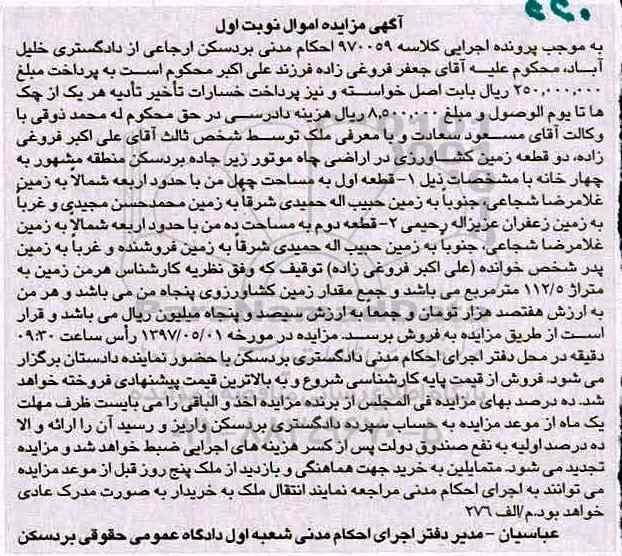 آگهی مزایده اموال نوبت اول
به موجب پرونده اجرایی کلاسه ۹۷۰۰۵۹ احکام مدنی بردسکن ارجاعی از دادگستری خلیل
آباد، محکوم علیه آقای جعفر فروغی زاده فرزند علی اکبر محکوم است به پرداخت مبلغ
۲۵۰,۰۰۰,۰۰۰ ریال بابت اصل خواسته و نیز پرداخت خسارات تأخیر تأدیه هر یک از چک
ها تا یوم الوصول و مبلغ ۸,۵۰۰,۰۰۰ ریال هزینه دادرسی در حق محکوم له محمد ذوقی با
وکالت آقای مسعود سعادت و با معرفی ملک توسط شخص ثالث آقای علی اکبر فروغی
زاده، دو قطعه زمین کشاورزی در اراضی چاه موتور زیر جاده بردسکن منطقه مشهور به
چهار خانه با مشخصات ذیل ۱- قطعه اول به مساحت چهل من با حدود اربعه شمالاً به زمین
غلامرضا شجاعی، جنوباً به زمین حبیب اله حمیدی شرقاً به زمین محمدحسن مجیدی و غرباً
به زمین زعفران عزیزاله رحیمی ۲- قطعه دوم به مساحت ده من با حدود اربعه شمالاً به زمین
غلامرضا شجاعی، جنوباً به زمین حبیب اله حمیدی شرقاً به زمین فروشنده و غرباً به زمین
پدر شخص خوانده (علی اکبر فروغی زاده) توقیف که وفق نظریه کارشناس هرمن زمین به
متراژ ۱۱۲/۵ مترمربع می باشد و جمع مقدار زمین کشاورزوی پنجاه من می باشد و هر من
به ارزش هفتصد هزار تومان و جمعاً به ارزش سیصد و پنجاه میلیون ریال می باشد و قرار
است از طریق مزایده به فروش برسد. مزایده در مورخه ۱۳۹۷/۰۵/۰۱ رأس ساعت ۰۹:۳۰
دقیقه در محل دفتر اجرای احکام مدنی دادگستری بردسکن با حضور نماینده دادستان برگزار
می شود. فروش از قیمت پایه کارشناسی شروع و به بالاترین قیمت پیشنهادی فروخته خواهد
شد. ده درصد بهای مزایده فی المجلس از برنده مزایده اخذ و الباقی را می بایست ظرف مهلت
یک ماه از موعد مزایده به حساب سپرده دادگستری بردسکن واریز و رسید آن را ارائه و الا
ده درصد اولیه به نفع صندوق دولت پس از کسر هزینه های اجرایی ضبط خواهد شد و مزایده
تجدید می شود. متمایلین به خرید جهت هماهنگی و بازدید از ملک پنج روز قبل از موعد مزایده
می توانند به اجرای احکام مدنی مراجعه نمایند انتقال ملک به خریدار به صورت مدرک عادی
خواهد بود.م/الف ۲۷۶
عباسیان - مدیر دفتر اجرای احکام مدنی شعبه اول دادگاه عمومی حقوقی بردسکن